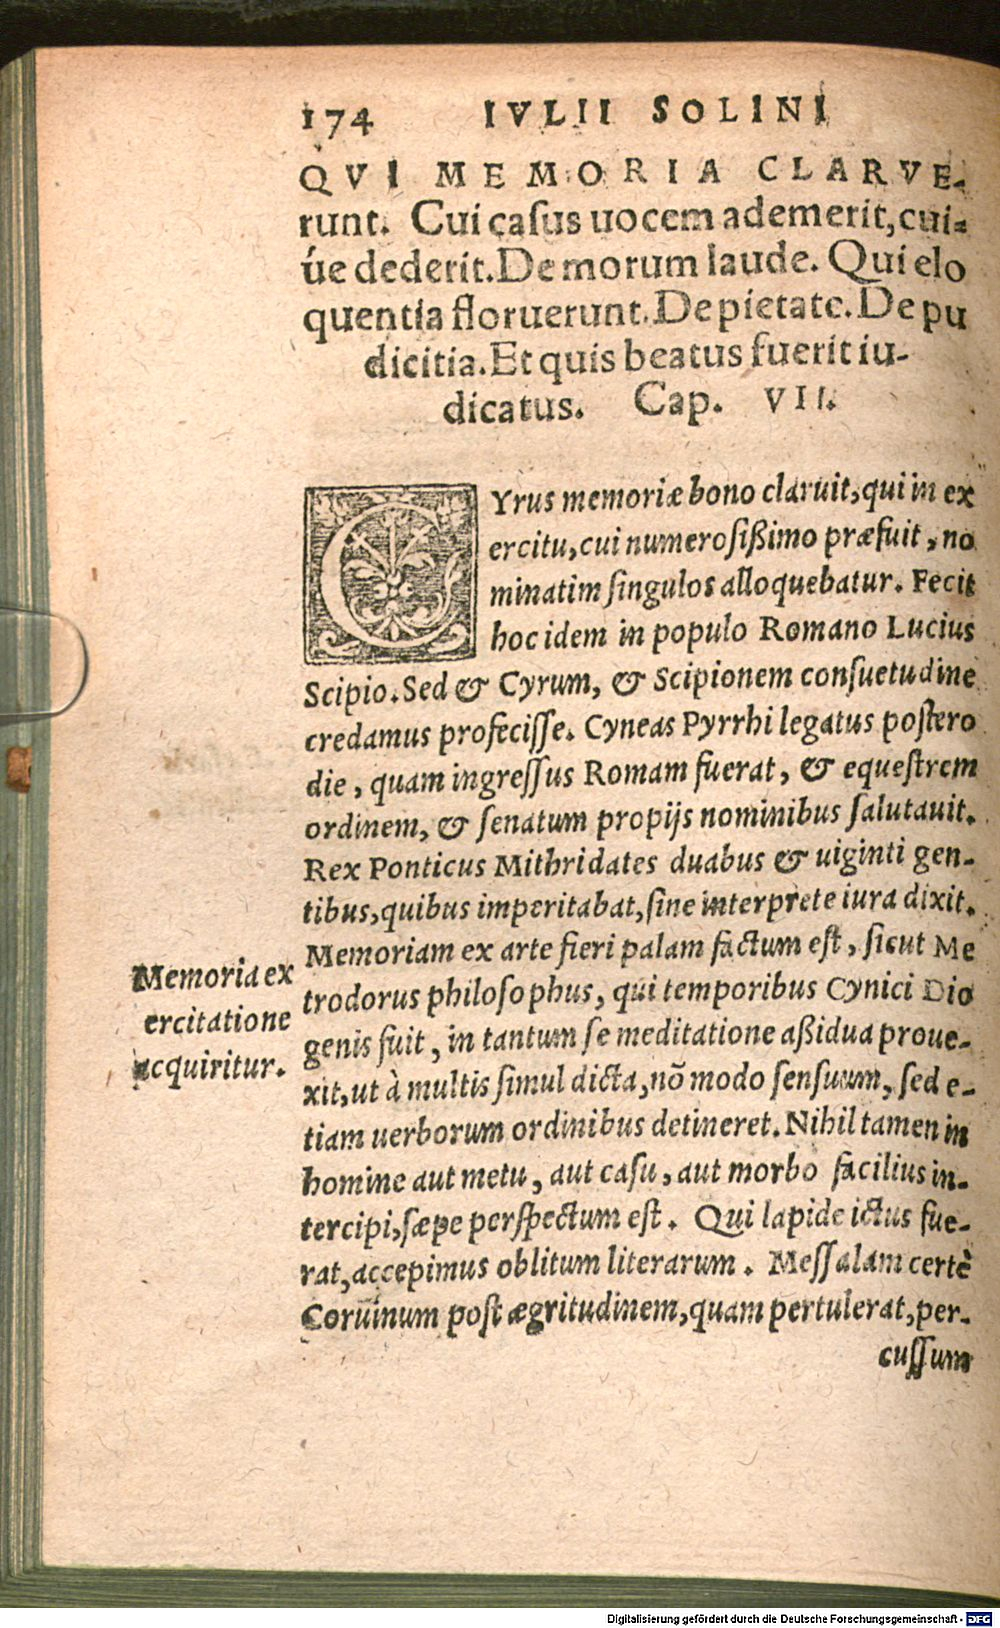 174 IVLII SOLINI
QVI MEMORIA CLARVE-
runt. Cui casus uocem ademerit, cui-
úe dederit. De morum laude. Qui elo
quentia floruerunt. De pietate. De pu
dicitia. Et quis beatus fuerit iu-
dicatus. Cap. VII.
CYrus memoriæ bono claruit, qui in ex
ercitu, cui numerosißimo præfuit, no
minatim singulos alloquebatur. Fecit
hoc idem in populo Romano Lucius
Scipio. Sed & Cyrum, & Scipionem consuetudine
credamus profecisse. Cyneas Pyrrhi legatus postero
die, quam ingressus Romam fuerat, & equestrem
ordinem, & senatum propijs nominibus salutauit.
Rex Ponticus Mithridates duabus & uiginti gen-
tibus, quibus imperitabat, sine interprete iura dixit.
Memoriam ex arte fieri palam factum est, sicut Me
trodorus philosophus, qui temporibus Cynici Dio
genis fuit, in tantum se meditatione aßidua proue-
xit, ut à multis simul dicta, nõ modo sensuum, sed e-
tiam uerborum ordinibus detineret. Nihil tamen in
homine aut metu, aut casu, aut morbo facilius in-
tercipi, sæpe perspectum est. Qui lapide ictus fue-
rat, accepimus oblitum literarum. Messalam certè
Coruinum post ægritudinem, quam pertulerat, per-
cussum
Memoria ex
ercitatione
acquiritur.
Digitalisierung gefördert durch die Deutsche Forschungsgemeinschaft - DFG